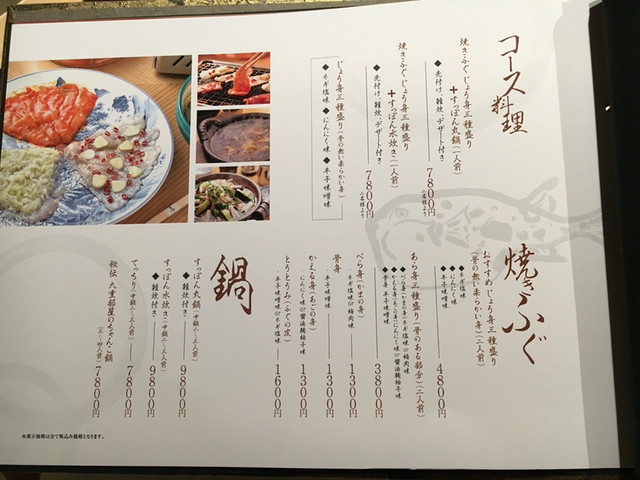 コース料理
焼きふぐじょう身三種盛り
+すっぽん丸鍋(一人前)
◆先付け、雑炊、デザート付き
7800円
二名様より
焼きふぐじょう身三種盛り
+すっぽん水炊き(一人前)
◆先付け、雑炊、デザート付き
7800円
二名様より
じょう身三種盛り(骨の無い柔らかい身)
◆ネギ塩味 ◆にんにく味 ◆辛子味噌味
焼きふぐ
おすすめ、じょう身三種盛り
(骨の無い柔らかい身)(二人前)
◆ネギ塩味
◆にんにく味
◆辛子味噌味
4800円
あら身三種盛り(骨のある部分)(二人前)
3800円
べら身(かまの身)
1300円
骨身
辛子味噌味
1300円
かえる身(あごの身)
にんにく味or醤油麹柚子味
1300円
とうとうみ(ふぐの皮)
辛子味噌味orネギ塩味
1600円
鍋
すっぽん丸鍋(中鍋 二〜三人前)
◆雑炊付き
9800円
すっぽん水炊き(中鍋 二〜三人前)
◆雑炊付き
9800円
てっちり(中鍋 二〜三人前)
7800円
秘伝 九重部屋のちゃんこ鍋
(三〜四人前)
7800円
※表示価格は全て税込み価格となります。